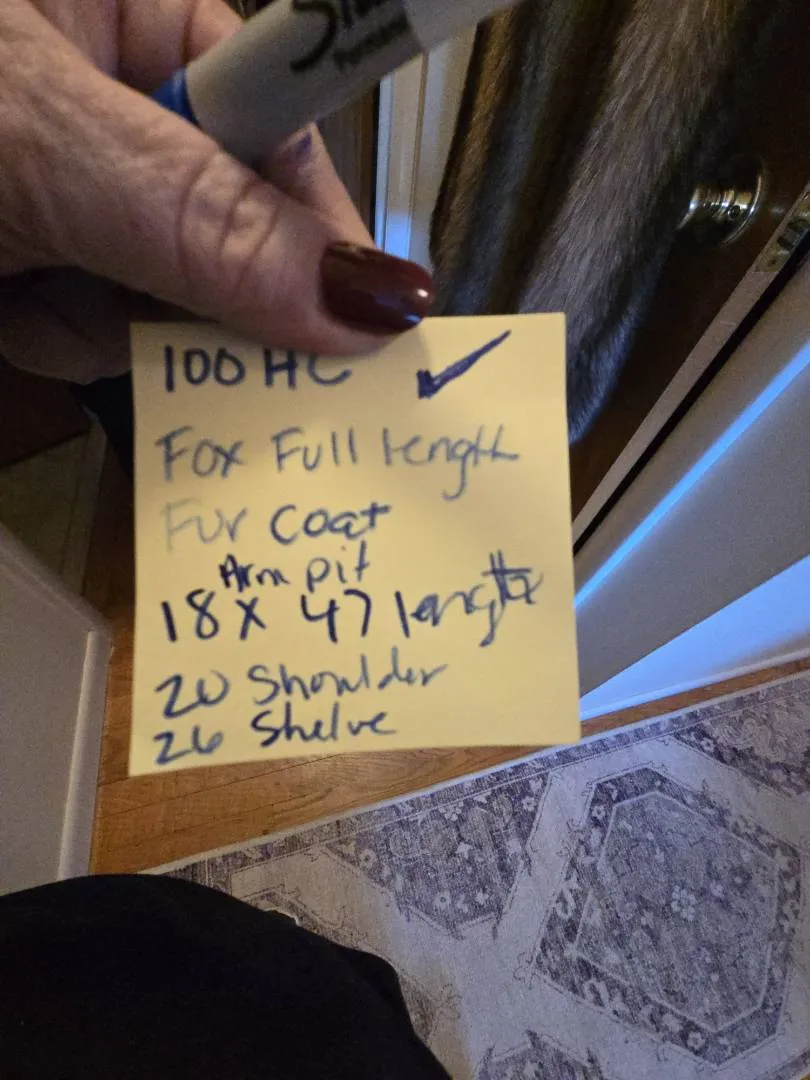 100 HC ✓
Fox Full length
Fur Coat
Arm pit
18 x 47 length
20 Shoulder
26 Shelve